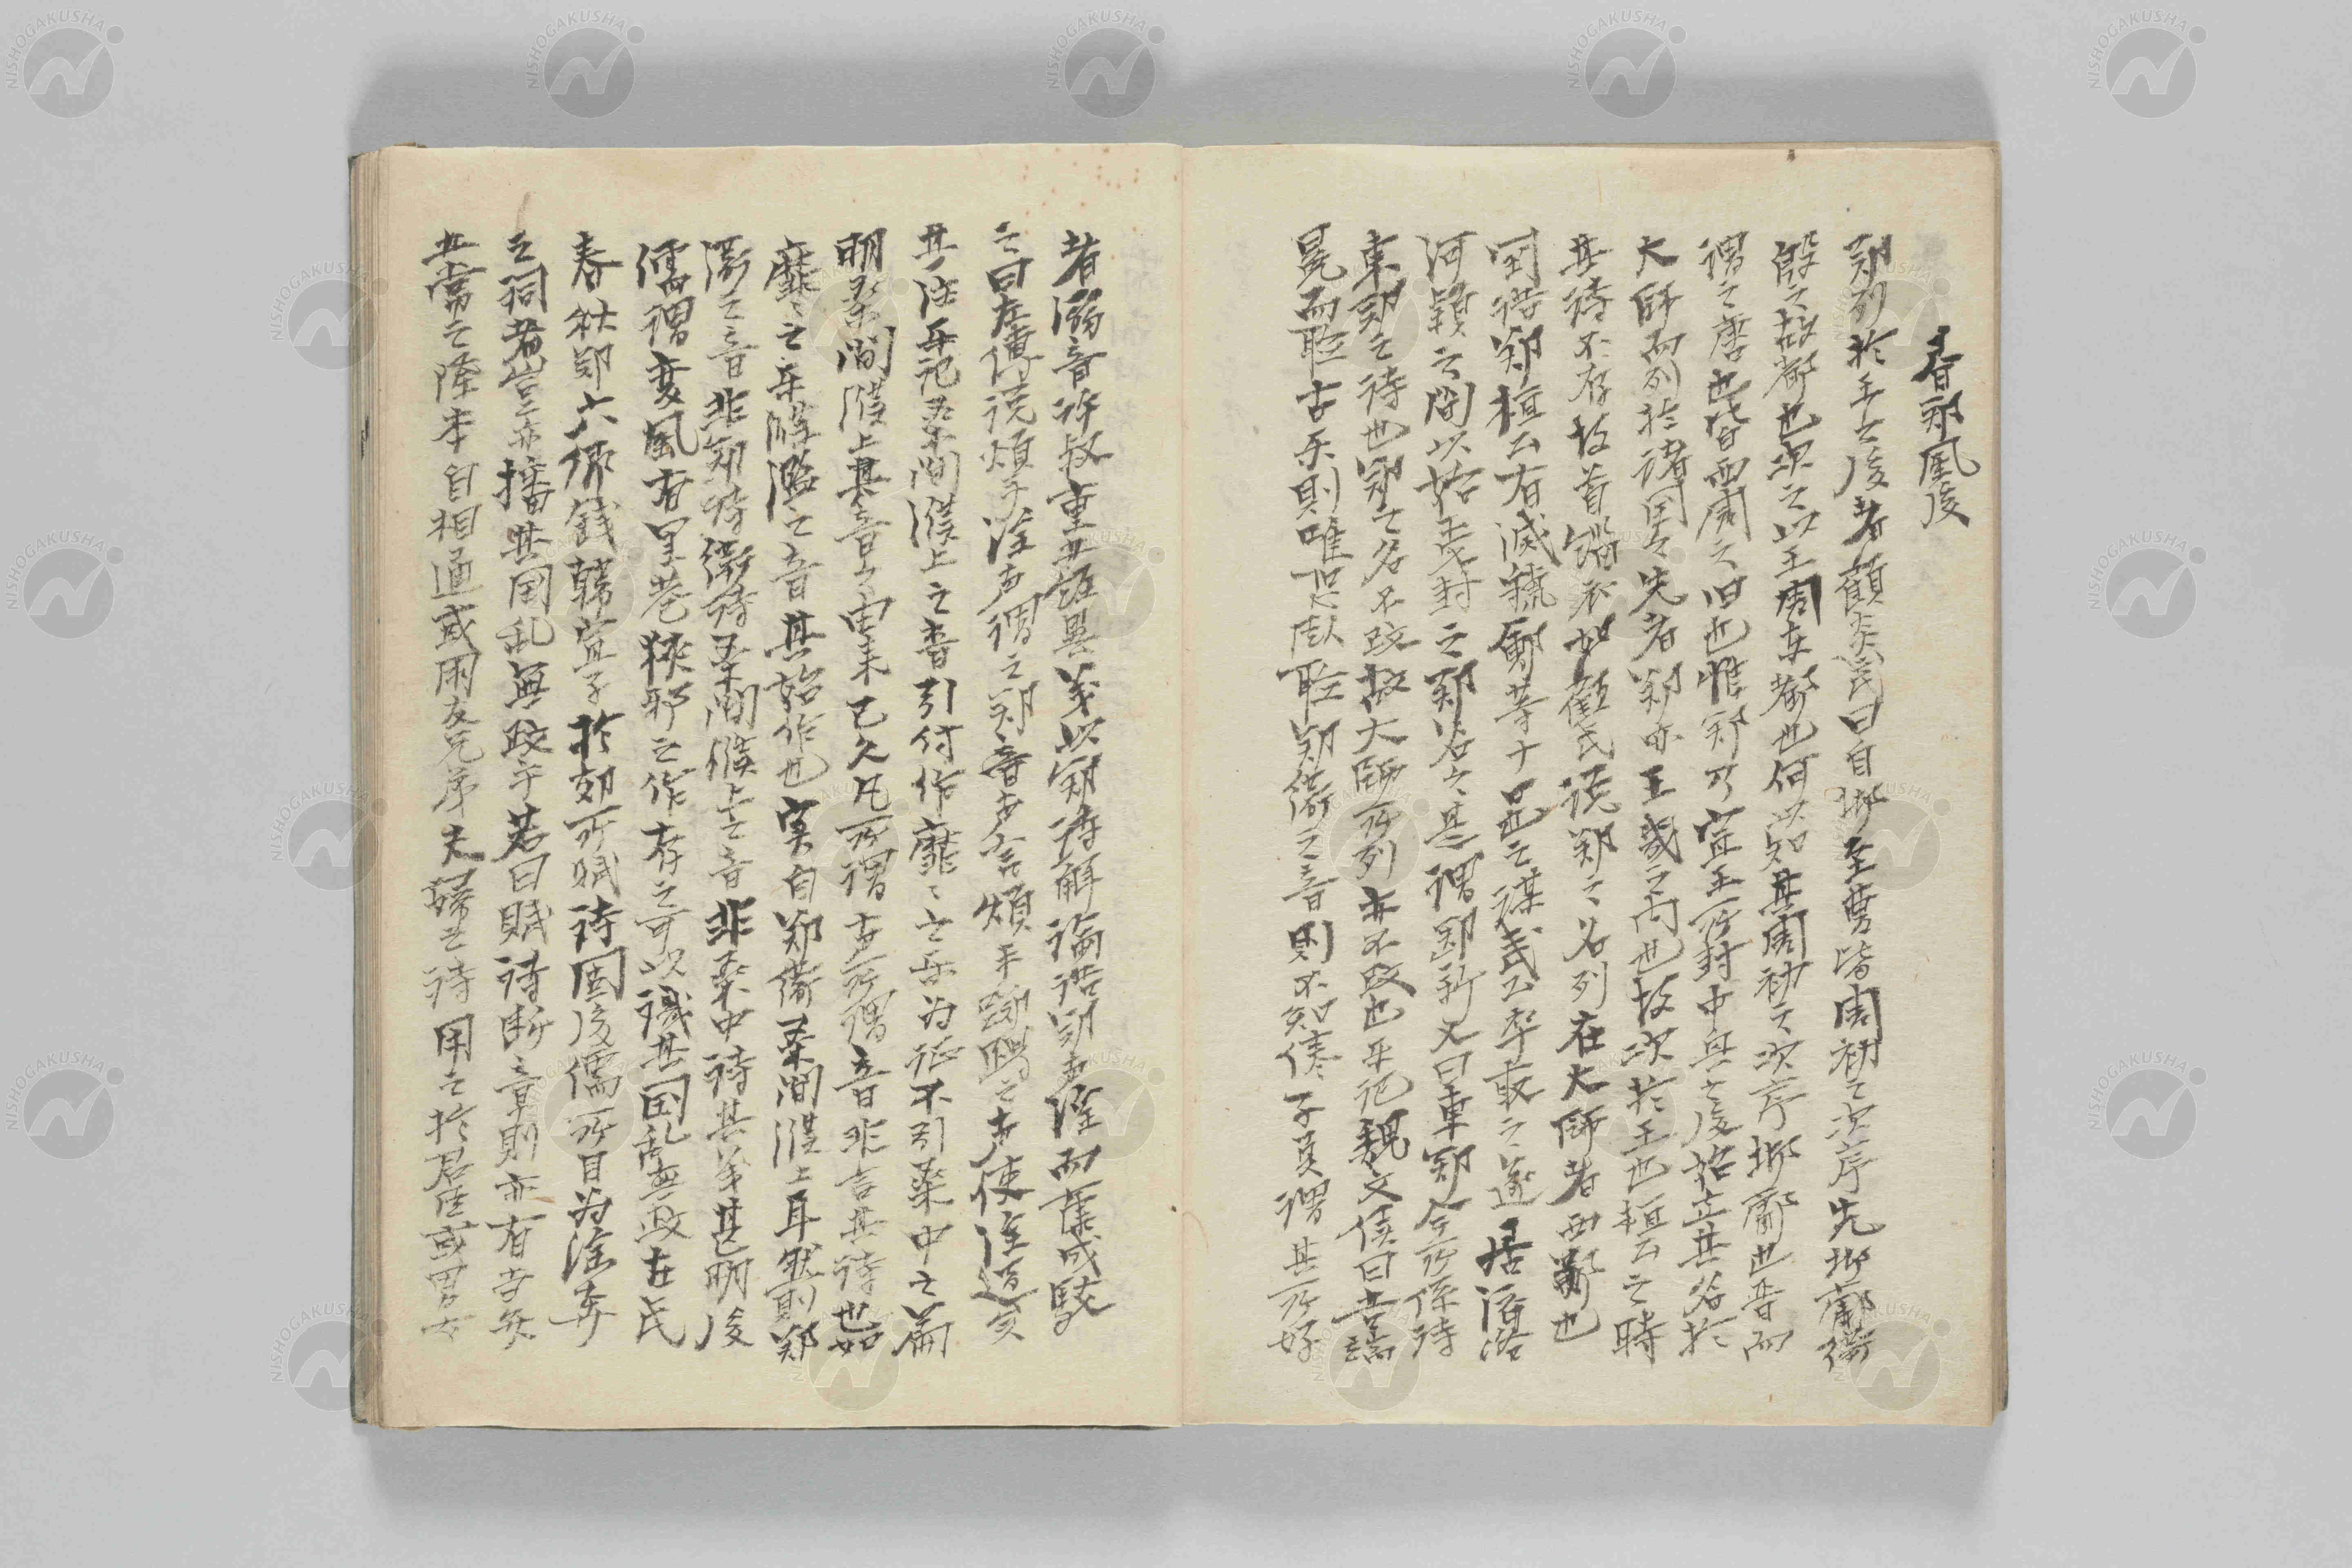 書鄭風後
鄭列於王之後者顧炎武曰自邶至曹皆周初之次序先邶鄘衛
殷之故都也次之以王周東都也何以知其周初之次序邶鄘也晋而
謂之唐也皆西周之旧也惟鄭乃宣王所封中興之後始立其名於
大師而列於諸国之先者鄭亦王畿之内也故次於王也桓公之時
其詩不存故首緇衣如顧氏説鄭之名列在大師者西鄭也
国語鄭桓公有滅虢鄶等十邑之謀武公卒取之遂居済洛
河頴之間以故封之鄭名之是謂鄭新又曰東鄭今所係詩
東鄭之詩也鄭之名不改故大師所列亦不改也乐記魏文侯曰吾端
冕而聴古乐則唯恐臥聴鄭衛之音則不知倦子夏謂其所好
者溺音許叔重五経異義以鄭詩解論語鄭声淫而集成駮
之曰左傳説煩手淫声謂之鄭音声言煩手躑躅之声使淫過矣
其注乐記桑間濮上之音引付作靡〻之乐為证不引桑中之篇
明桑間濮上其音之由来已久凡所謂声所謂音非言其詩也如
靡〻之乐滌濫之音其始作也実自鄭衛桑間濮上耳然則鄭
衛之音非鄭詩衛詩桑間濮上之音非桑中詩其義甚明後
儒謂変風有里巷狹邪之作存之可以識其国乱無政在氏
春秋鄭六卿餞韓宣子於郊所賦詩固後儒所目為淫奔
之詞者豈亦播其国乱無政乎若曰賦詩断章則亦有吉矣
五常之際本自相通或用友兄弟夫婦之詩用之於君臣或男女